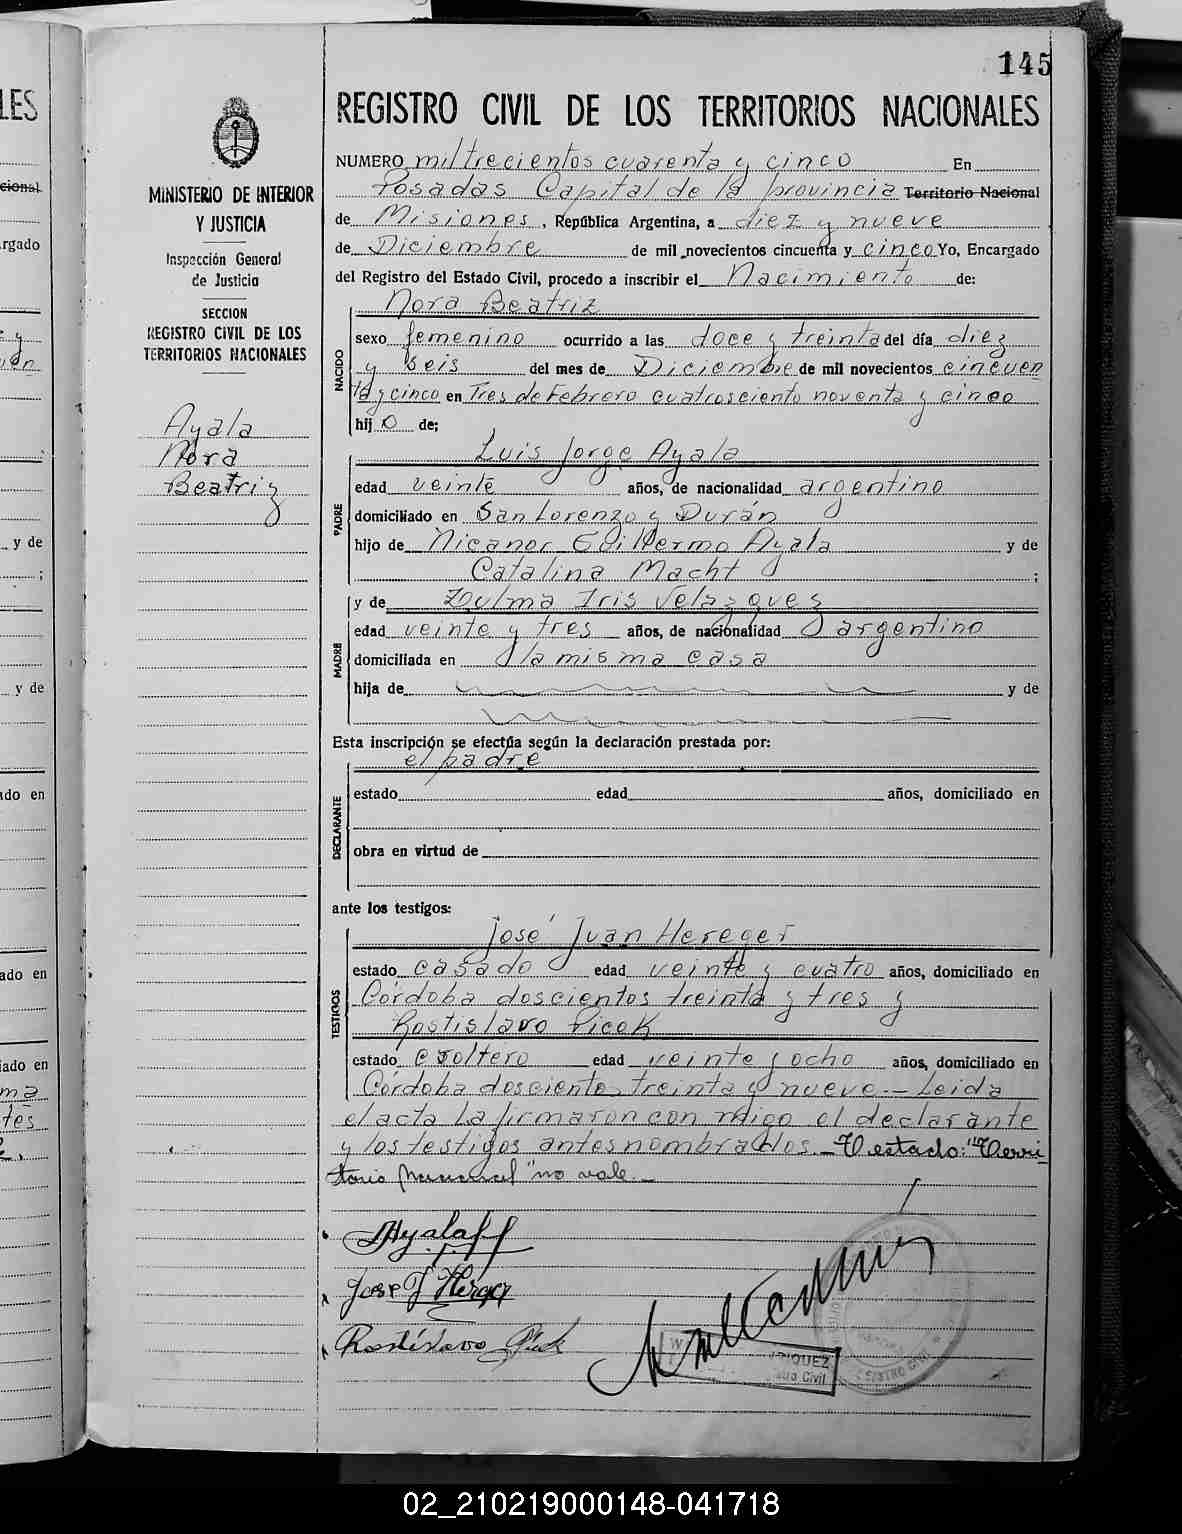 145
LES
cional
rgado
y
y de
;
y de
ado en
ado en
iado en
ma
tes
MINISTERIO DE INTERIOR
Y JUSTICIA
Inspección General
de Justicia
SECCION
REGISTRO CIVIL DE LOS
TERRITORIOS NACIONALES
Ayala
Nora
Beatriz
REGISTRO CIVIL DE LOS TERRITORIOS NACIONALES
NUMERO mil trecientos cuarenta y cinco En
Posadas Capital de la provincia Territorio Nacional
de Misiones, República Argentina, a diez y nueve
de Diciembre de mil novecientos cincuenta y cinco Yo, Encargado
del Registro del Estado Civil, procedo a inscribir el Nacimiento de:
Nora Beatriz
NACIDO
sexo femenino ocurrido a las doce y treinta del día diez
y seis del mes de Diciembre de mil novecientos cincuen
ta y cinco en Tres de Febrero cuatrosciento noventa y cinco
hij o de;
Luis Jorge Ayala
PADRE
edad veinte años, de nacionalidad argentino
domiciliado en San Lorenzo y Durán
hijo de Nicanor Guillermo Ayala y de
Catalina Macht ;
y de Zulma Iris Velazquez
MADRE
edad veinte y tres años, de nacionalidad argentino
domiciliada en la misma casa
hija de y de
Esta inscripción se efectúa según la declaración prestada por:
el padre
DECLARANTE
estado edad años, domiciliado en
obra en virtud de
ante los testigos:
José Juan Hereger
TESTIGOS
estado casado edad veinte y cuatro años, domiciliado en
Córdoba doscientos treinta y tres y
Rostislavo Picek
estado soltero edad veinte y ocho años, domiciliado en
Córdoba dosciento treinta y nueve — Leida
el acta la firmaron con migo el declarante
y los testigos antes nombrados. — Testado: "Terri
torio Nacional" no vale. —
Ayala
Jose J Hereger
Rostislavo Picek
QUEZ
Civil
02_210219000148-041718